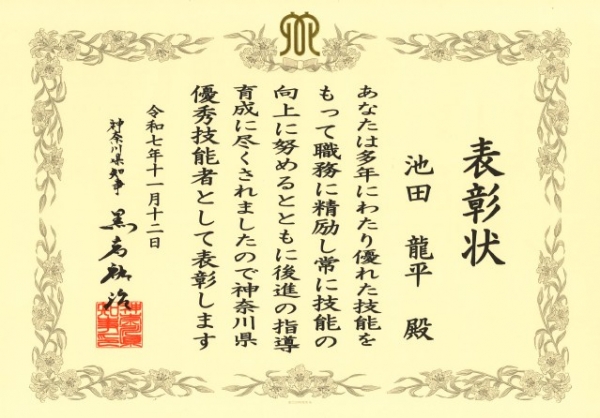 表彰状
池田 龍平 殿
あなたは多年にわたり優れた技能を
もって職務に精励し常に技能の
向上に努めるとともに後進の指導
育成に尽くされましたので神奈川県
優秀技能者として表彰します
令和七年十一月十二日
神奈川県知事 黒岩祐治